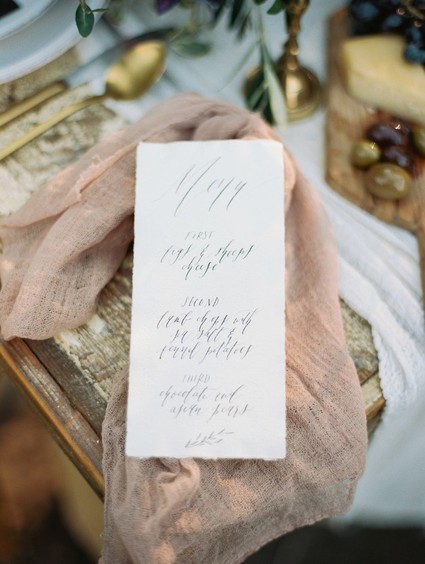 Menu
FIRST
figs & sheeps
cheese
SECOND
lamb chops with
sea salt &
round potatoes
THIRD
chocolate and
pears